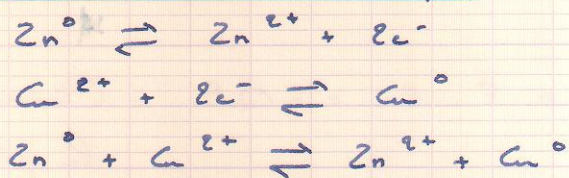 Zn⁰ ⇌ Zn²⁺ + 2e⁻
Cu²⁺ + 2e⁻ ⇌ Cu⁰
Zn⁰ + Cu²⁺ ⇌ Zn²⁺ + Cu⁰